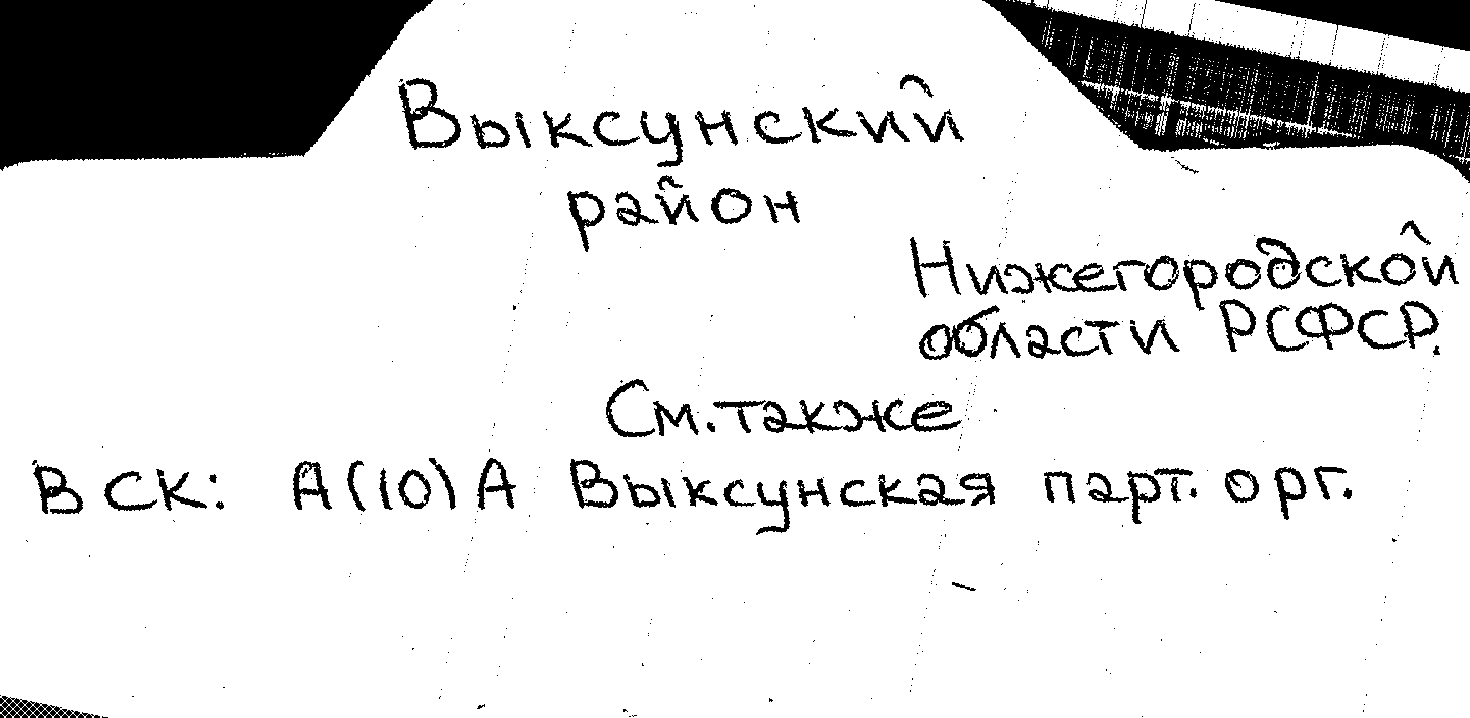 Выксунский
район
Нижегородской
области РСФСР.
См. также
В СК: А(10)А Выксунская парт. орг.